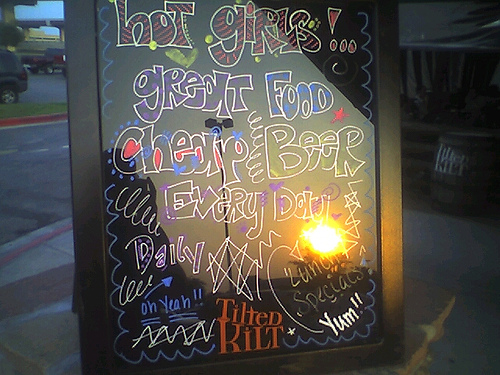 HOT GIRLS!!
great FOOD
Cheap BEER
EVERY Day
Daily
"Lunch
Specials"
oh Yeah!!
Yum!!
Tilted
KiLT